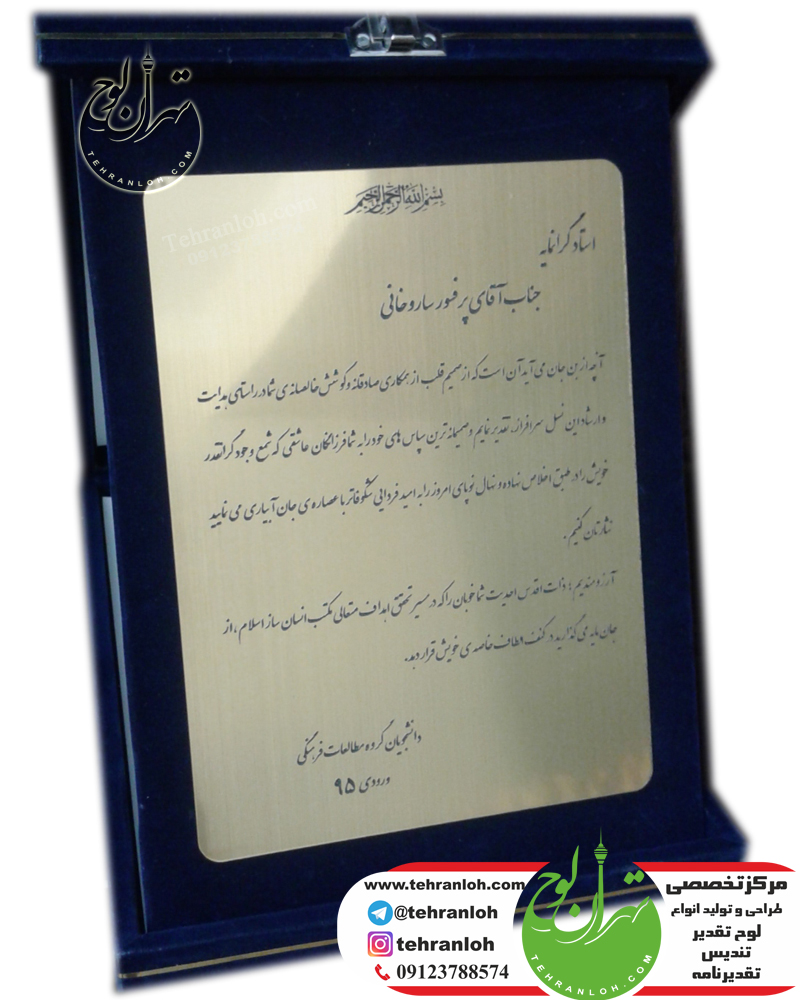 تهران لوح
TEHRANLOH.COM
Tehranloh.com
بسم الله الرحمن الرحیم
استاد گرانمایه
جناب آقای پرفسور ساروخانی
آنچه از بن جان می آید آن است که از صمیم قلب از همکاری صادقانه و کوشش خالصانه ی شما در راستای هدایت
و ارشاد این نسل سرافراز، تقدیر نمایم و صمیمانه ترین سپاس های خود را به شما فرزانگان عاشقی که شمع وجود گرانقدر
خویش را در طبق اخلاص نهاده و نهال نوپای امروز را به امید فردایی شکوفاتر با عصاره ی جان آبیاری می نمایید
نثارتان کنیم.
آرزومندیم؛ ذات اقدس احدیت شما خوبان را که در مسیر تحقق اهداف متعالی مکتب انسان ساز اسلام، از
جان مایه می گذارید در کنف الطاف خاصه ی خویش قرار دهد.
دانشجویان گروه مطالعات فرهنگی
ورودی ۹۵
www.tehranloh.com
@tehranloh
tehranloh
09123788574
تهران لوح
TEHRANLOH.COM
مرکز تخصصی
طراحی و تولید انواع
لوح تقدیر
تندیس
تقدیرنامه